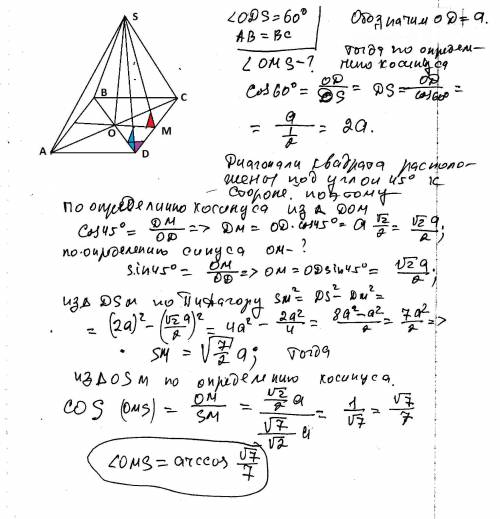 S
B
C
O
M
A
D
∠ODS = 60°
AB = BC
∠OMS - ?
Обозначим OD = a.
Тогда по определе-
нию косинуса
cos60° = OD/DS = DS = OD/cos60° =
= a/(1/2) = 2a.
Диагонали квадрата располо-
жены под углом 45° к
стороне. поэтому
По определению косинуса из Δ DOM
cos45° = DM/OD => DM = OD·cos45° = a √2/2 = √2a/2;
по определению синуса OM - ?
sin45° = OM/OD => OM = OD sin45° = √2a/2;
из Δ DSM по Пифагору SM² = DS² - DM² =
= (2a)² - (√2a/2)² = 4a² - 2a²/4 = 8a²-a²/2 = 7a²/2 =>
SM = √7/2 a; тогда
из ΔOSM по определению косинуса.
COS (OMS) = OM/SM = (√2/2 a)/(√7/√2 a) = 1/√7 = √7/7
∠OMS = arccos √7/7